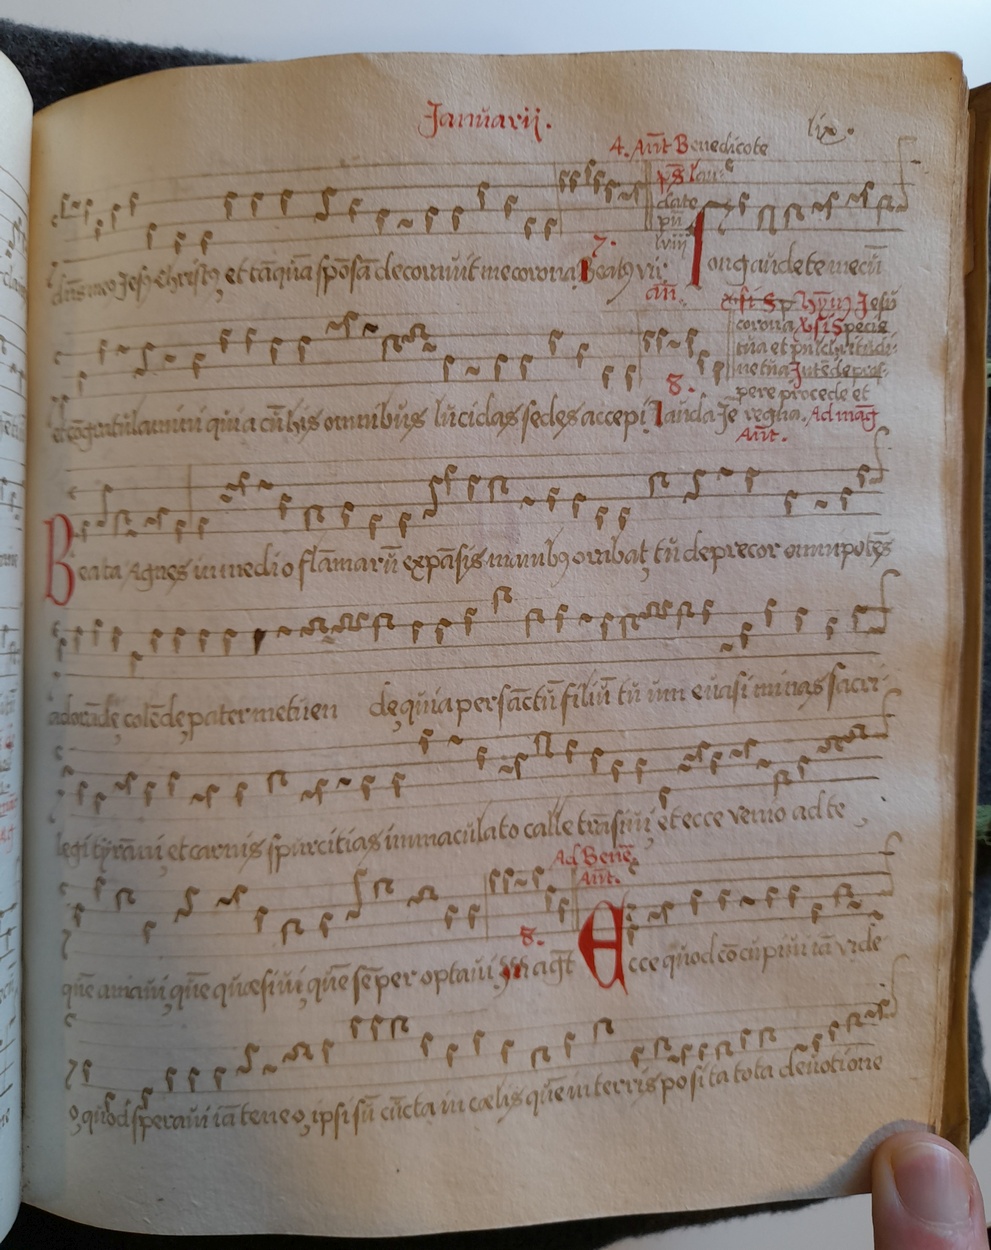 Januarij.
lix.
4. Añt Benedicote
pš lau
date
pñ
lviij
7.
dñs meo Jesu christo, et tāquā spōsā decoravit me corona Beatus vir
Congaudete mecū
añ.
Hym Jesu
corona Specie
tua et pulchritudi-
ne tua Intēde pros-
pere procede et
regna. Ad mag
Añt.
8.
et cōgratulamini quia cū his omnibus lucidas sedes accepi Lauda Je
Beata Agnes in medio flāmarū expāsis manibus orabat, tu deprecor omnipotēs
adorāde, colēde, pater metuen de, quia per sāctū filiū tu um evasi minas sacri-
legi tyrāni et carnis spurcitias immaculato calle trāsivi, et ecce venio ad te,
Ad Bene.
Añt.
8.
quē amavi, quē quæsivi, quē sēper optavi. Magt Ecce quod cōcupivi iā vide
o, quod speravi iā teneo, ipsi sū iūcta in cælis quē in terris posita tota devotione